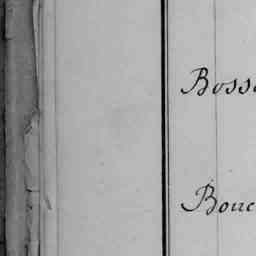 Boss
Bouc